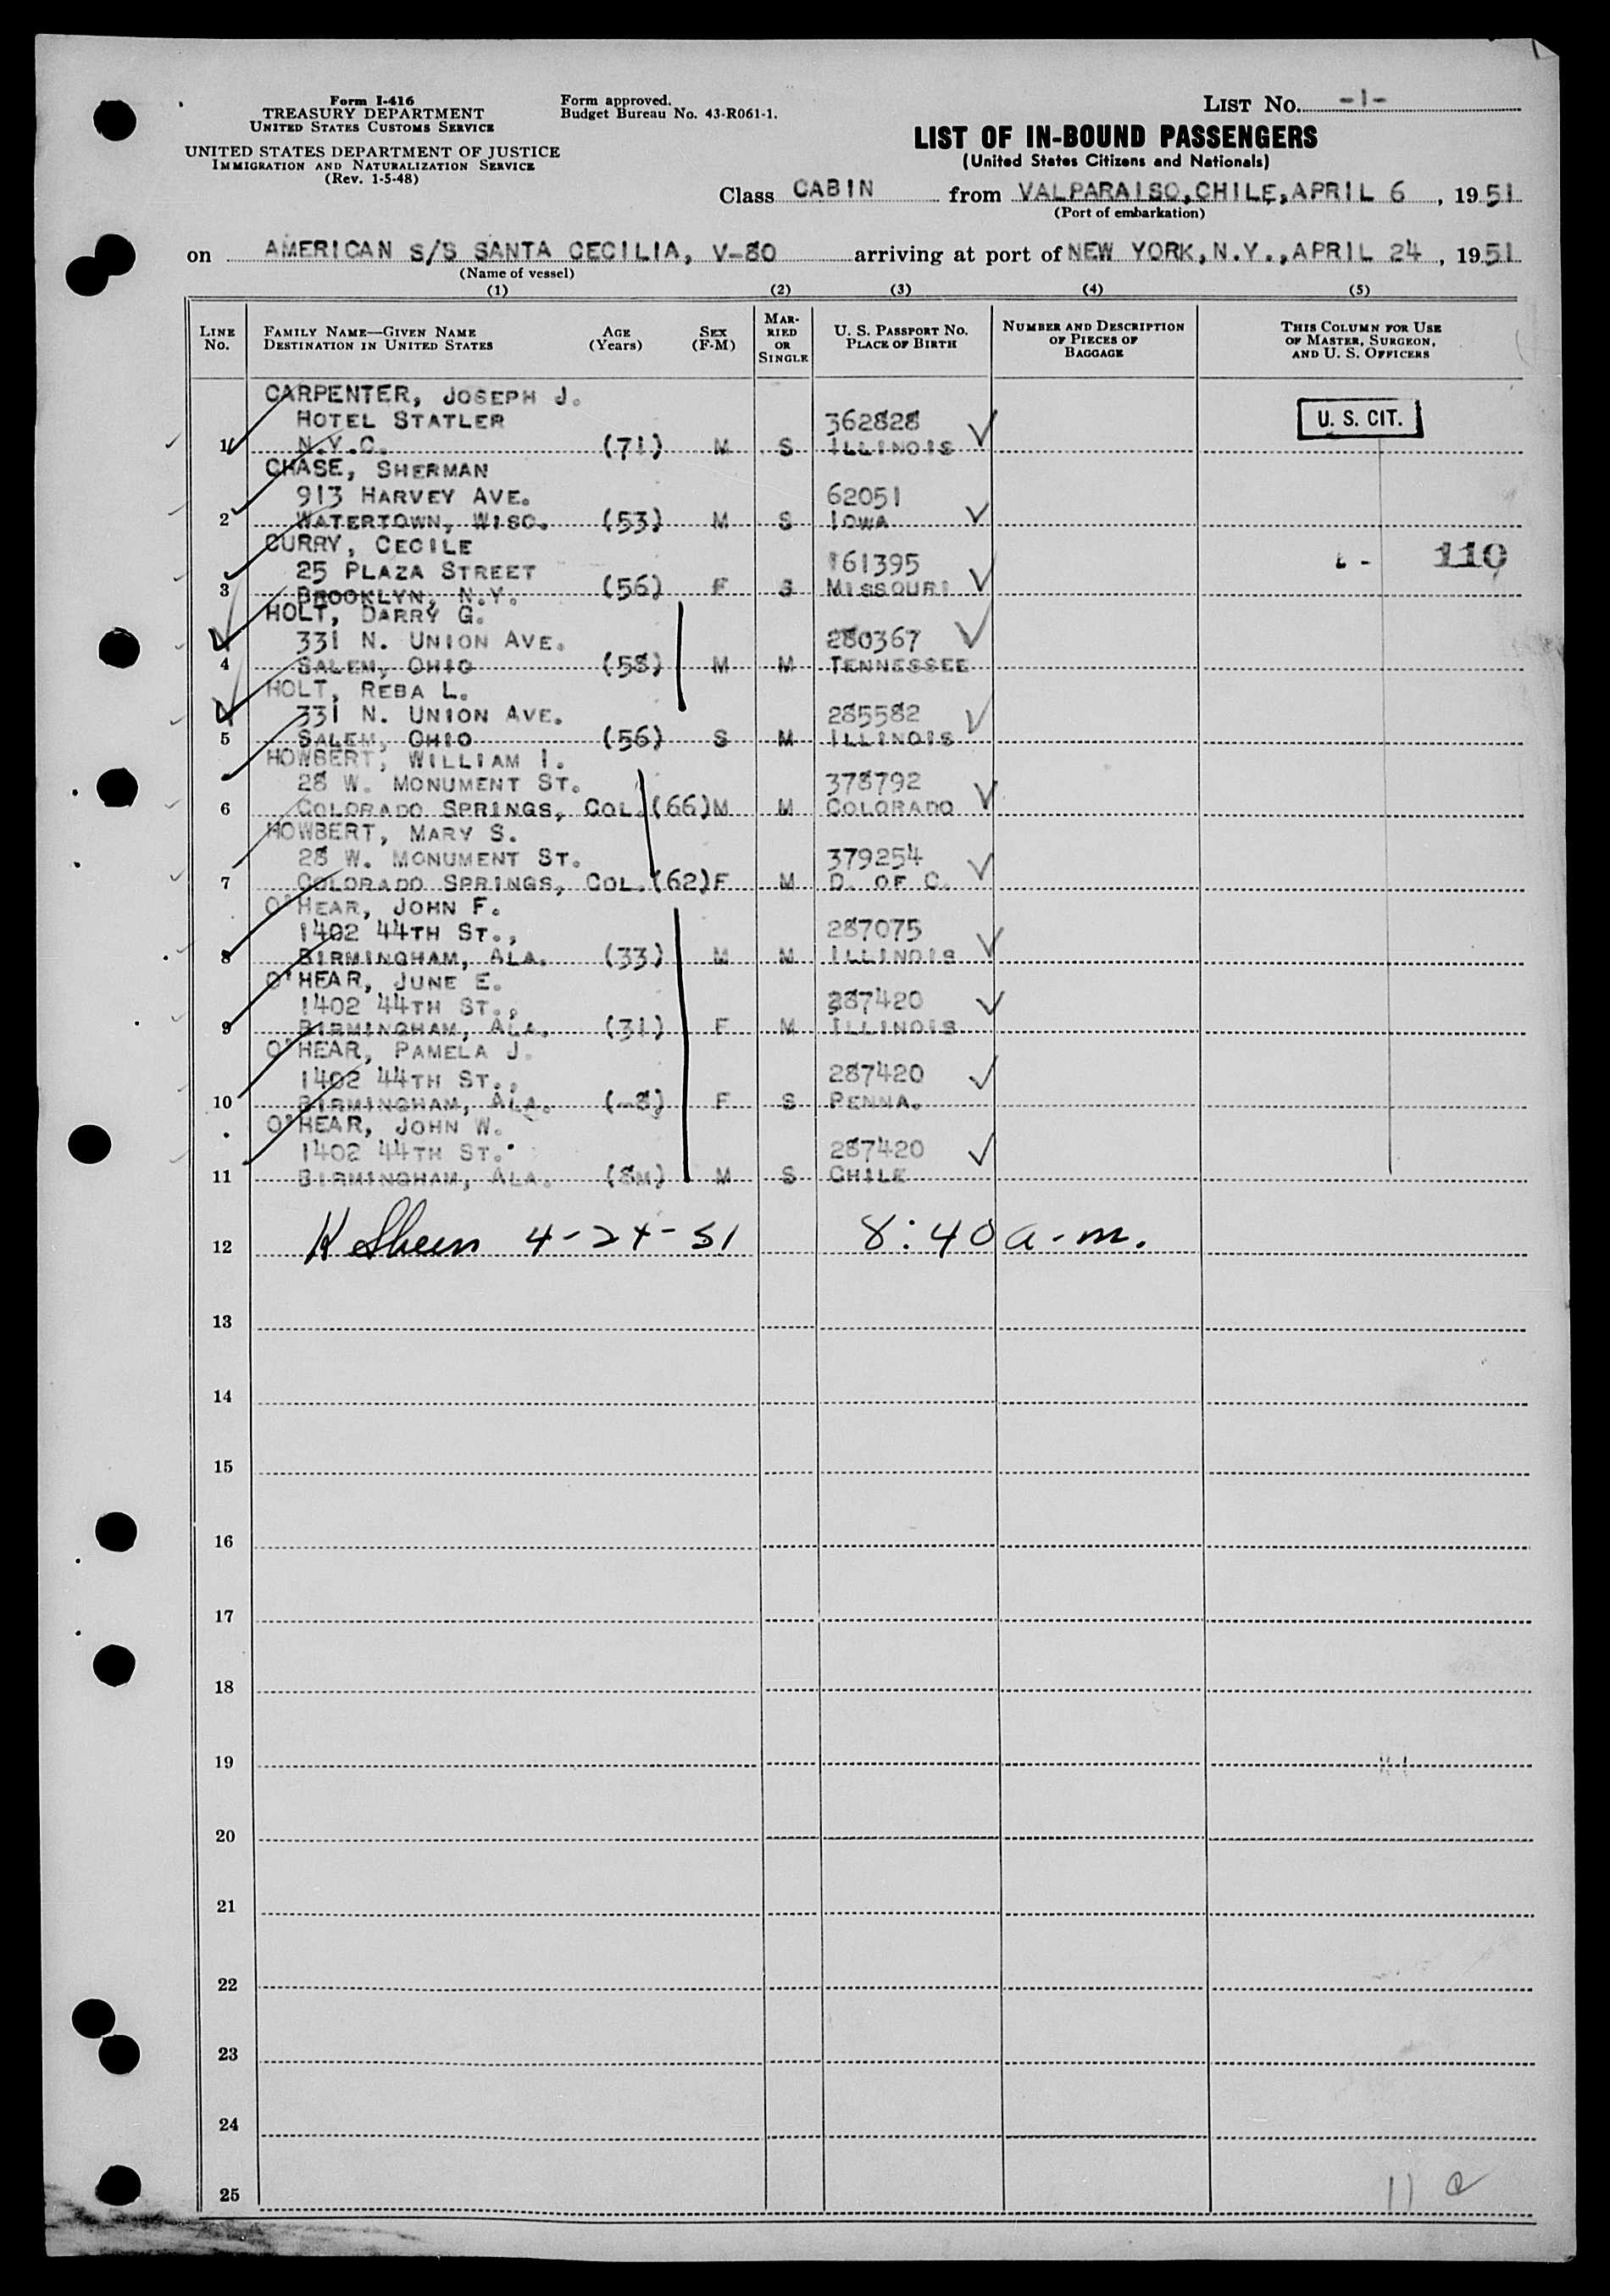 Form I-416
TREASURY DEPARTMENT
UNITED STATES CUSTOMS SERVICE
UNITED STATES DEPARTMENT OF JUSTICE
IMMIGRATION AND NATURALIZATION SERVICE
(Rev. 1-5-48)
Form approved.
Budget Bureau No. 43-R061-1.
LIST NO. -1-
LIST OF IN-BOUND PASSENGERS
(United States Citizens and Nationals)
Class CABIN from VALPARAISO, CHILE, APRIL 6, 1951
(Port of embarkation)
on AMERICAN S/S SANTA CECILIA, V-80 arriving at port of NEW YORK, N.Y., APRIL 24, 1951
(Name of vessel)
(1) (2) (3) (4) (5)
LINE NO.
FAMILY NAME—GIVEN NAME
DESTINATION IN UNITED STATES
AGE (Years)
SEX (F-M)
MARRIED OR SINGLE
U. S. PASSPORT NO.
PLACE OF BIRTH
NUMBER AND DESCRIPTION OF PIECES OF BAGGAGE
THIS COLUMN FOR USE OF MASTER, SURGEON, AND U. S. OFFICERS
CARPENTER, JOSEPH J.
HOTEL STATLER 362828 U. S. CIT.
1 N.Y.C. (71) M S ILLINOIS
CHASE, SHERMAN
913 HARVEY AVE. 62051
2 WATERTOWN, WISC. (53) M S IOWA
CURRY, CECILE 110
25 PLAZA STREET 161395
3 BROOKLYN, N.Y. (56) F S MISSOURI
HOLT, DARRY G.
331 N. UNION AVE. 280367
4 SALEM, OHIO (58) M M TENNESSEE
HOLT, REBA L.
331 N. UNION AVE. 285582
5 SALEM, OHIO (56) S M ILLINOIS
HOWBERT, WILLIAM I.
28 W. MONUMENT ST. 378792
6 COLORADO SPRINGS, COL. (66) M M COLORADO
HOWBERT, MARY S.
28 W. MONUMENT ST. 379254
7 COLORADO SPRINGS, COL. (62) F M D. OF C.
O'HEAR, JOHN F.
1402 44TH ST., 287075
8 BIRMINGHAM, ALA. (33) M M ILLINOIS
O'HEAR, JUNE E.
1402 44TH ST., 287420
9 BIRMINGHAM, ALA. (31) F M ILLINOIS
O'HEAR, PAMELA J.
1402 44TH ST., 287420
10 BIRMINGHAM, ALA. (-8) F S PENNA.
O'HEAR, JOHN W.
1402 44TH ST. 287420
11 BIRMINGHAM, ALA. (8M) M S CHILE
12 4-24-51 8:40 a.m.
13
14
15
16
17
18
19
20
21
22
23
24
25
11